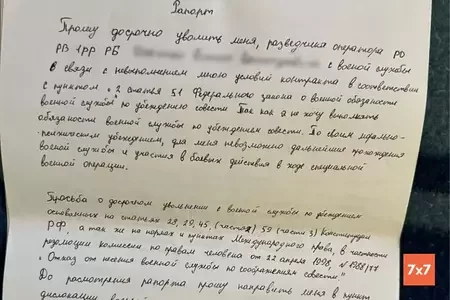 Рапорт
Прошу досрочно уволить меня, разведчика оператора РО
РВ 1РР РБ с военной службы
в связи с невыполнением мною условий контракта в соответствии
с пунктом 2 статья 51 Федерального закона о военной обязаности
военной службы по убеждению совести. Так как я не хочу
обязаности военной службы по убеждениям совести. По своим морально-
психическим убеждениям, для меня невозможно дальнейшие прохождения
военной службы и участия в боевых действия в ходе специальной
военной операции.
Просьба о досрочном увольнении с военной службы по убеждением
основанных на статьях 28, 29, 45, (часть 2) 59 (часть 3) Конституции
РФ, а так же по нормах и пунктах Международного права, в частности
резолюции комиссии по правам человека от 22 апреля 1998, № 1998/77
"Отказ от несения военной службы по соображениям совести"
До расмотрения рапорта прошу направить меня в пункт
дислокации
7x7